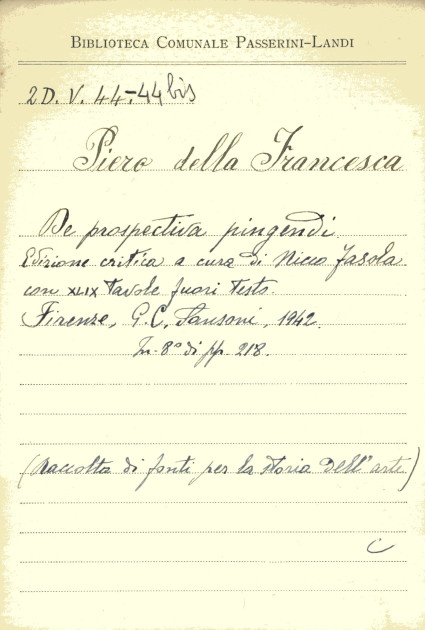 BIBLIOTECA COMUNALE PASSERINI-LANDI
2D. V. 44-44 bis
Piero della Francesca
De prospectiva pingendi
Edizione critica a cura di Nicco Fasola
con XLIX tavole fuori testo.
Firenze, G. C. Sansoni, 1942.
In-8° di pp. 218.
(Raccolta di fonti per la storia dell'arte)
C